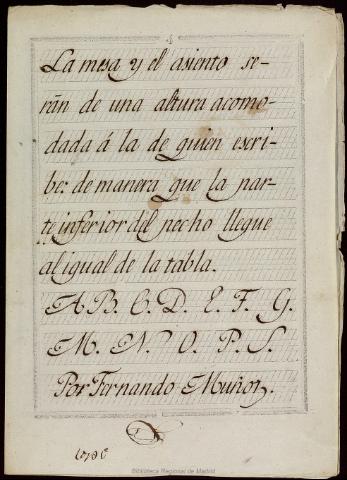 La mesa y el asiento se-
rán de una altura acomo-
dada á la de quien escri-
be: de manera que la par-
te inferior del pecho llegue
al igual de la tabla.
A. B. C. D. E. F. G.
M. N. O. P. S.
Por Fernando Muñoz.
Biblioteca Regional de Madrid